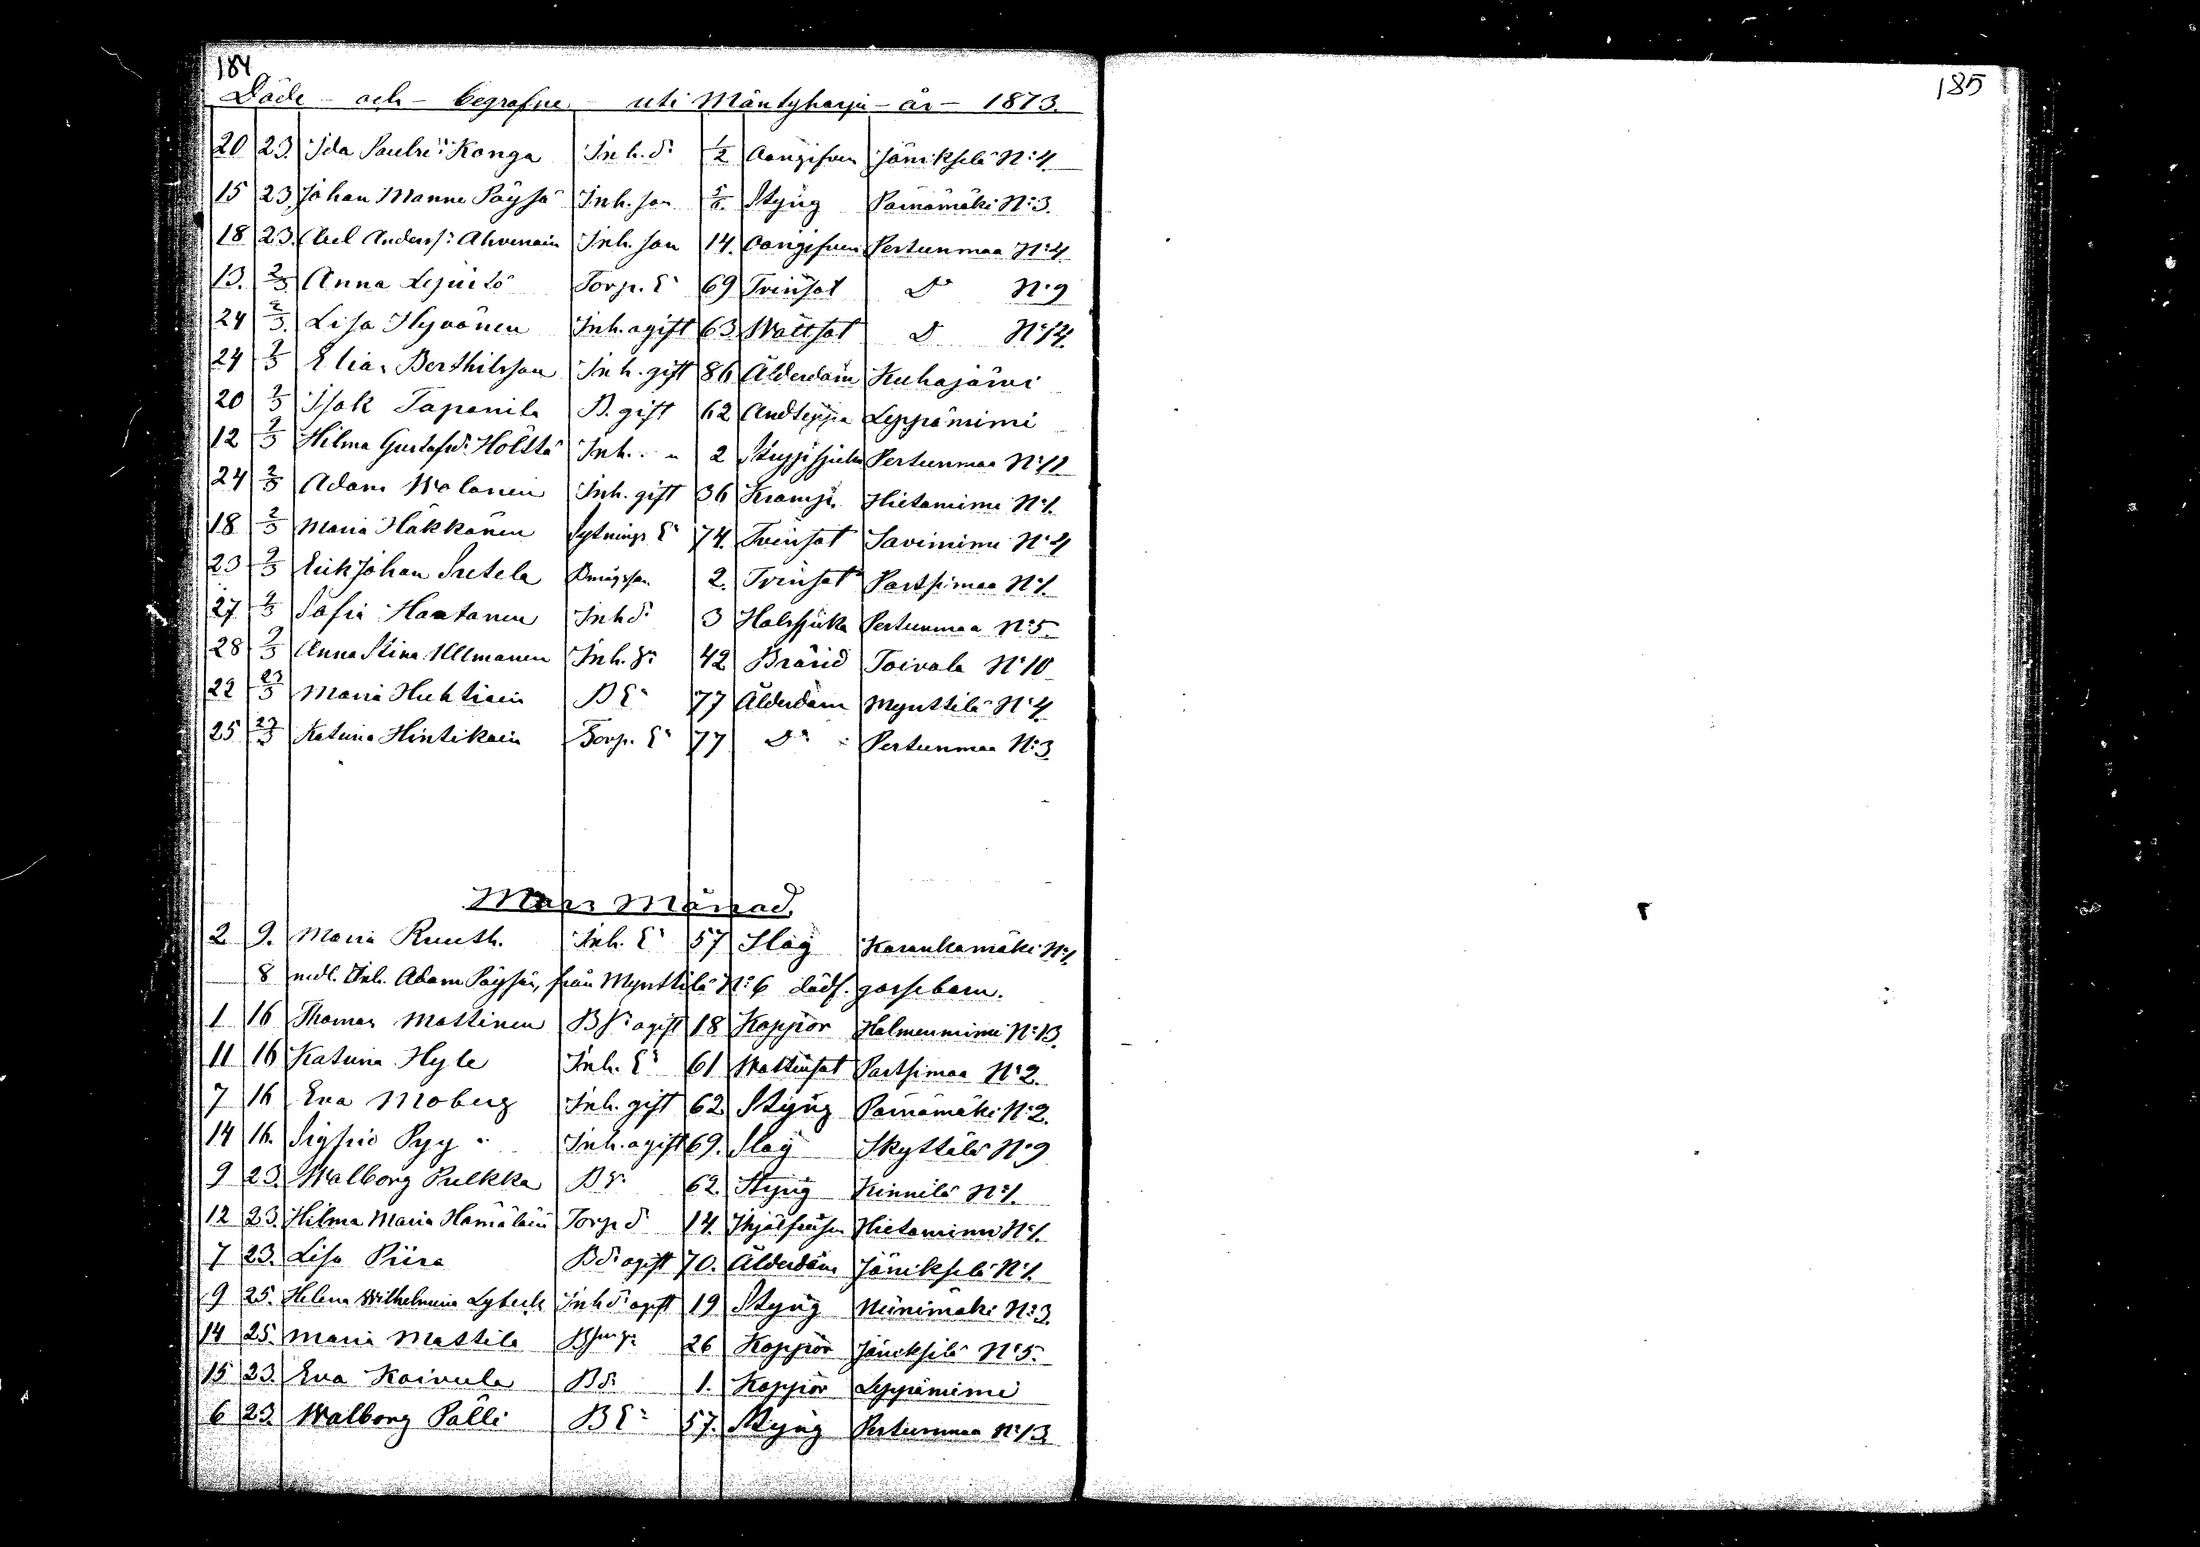 184
185
Döde - och - begrafne - uti Mäntyharju - år - 1873.
20 23. Ida Paulsd: Konga Inh. d: 1/2 Oangifven Jäniksilä N:4.
15 23. Johan Manne Päysä Inh. son Styng Painämäki N:3.
18 23. Abel Anderss: Ahvenain Inh. son 14. Oangifven Pertunmaa N:4
13. 2/3 Anna Torp. E: 69 Tvinsot D:o N:9
24 2/3. Lisa Hyvönen Inh. ogift 63 Wattsot D N:12.
24 2/3 Elias Berthilsson Inh. gift 86 Ålderdom Kuhajärvi
20 2/3 Isak Tapanila B. gift 62 Andtäppa Leppäniemi
12 2/3 Hilma Gustafsd: Hölttä Inh. 2 Pertunmaa N:12
24 2/3 Adam Inh. gift 36 Kramp. Hietaniemi N:1.
18 2/3 Maria Häkkänen Sytnings E: 74. Tvinsot Saviniemi N:4
23 2/3 Erik Johan 2. Tvinsot Partsimaa N:1.
27 2/3 Sofia Haatanen Inh d: 3 Halssjuka Pertunmaa N:5
28 2/3 Anna Stina Ullmanen Inh. h: 42 Bråeld Toivola N:10
22 23/3 Maria Huhtiain B E: 77 Ålderdom Mynttilä N:4.
25 23/3 Katrina Hintikain Torp. E: 77 D:o Pertunmaa N:3
Mars Månad.
2 9. Maria Ruuth. Inh. E: 57 Slag Karankamäki N:1.
8 medl. Inh. Adam Päysän, från Mynttilä N:6 dödf. gossebarn.
1 16 Thomas Mattinen B S: ogift 18 Koppor Halmenniemi N:13.
11 16 Katrina Hyle Inh. E: 61 Wattusot Partsimaa N:2.
7 16 Eva Moberg Inh. gift 62 Styng Painämäki N:2.
14 16. Sigfrid Pyy Inh. ogift 69. Slag Skyttälä N:9
9 23. Walborg Pulkka B h: 62. Styng Kinnilä N:1.
12 23. Hilma Maria Hämäläin Torp d: 14. Hietaniemi N:1.
7 23. Lisa Piira B d: ogift 70. Ålderdom Jäniksilä N:1.
9 25. Helena Wilhelmina Lybeck Inh d: ogift 19 Styng Niinimäki N:3.
14 25. Maria Mattila 26 Koppor Jäniksilä N:5.
15 23. Eva Koivula B d: 1. Koppor Leppäniemi
6 23. Walborg Pälli B E: 57. Styng Pertunmaa N:13.